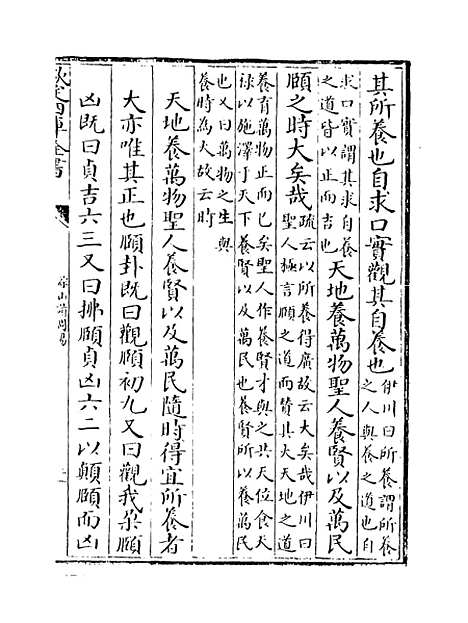 其所養也自求口實觀其自養也
伊川曰所養謂所養
之人與養之道也自
求口實謂其求自養
之道皆以正而吉也
天地養萬物聖人養賢以及萬民
頤之時大矣哉
疏云以所養得廣故云大矣哉伊川曰
聖人極言頤之道而贊其大天地之道
養育萬物正而已矣聖人作養賢才與之共天位食天
祿以施澤于天下養賢以及萬民也養賢所以養萬民
也又曰萬物之生與
養時為大故云時
天地養萬物聖人養賢以及萬民隨時得宜所養者
大亦唯其正也頤卦既曰觀頤初九又曰觀我朵頤
凶既曰貞吉六三又曰拂頤貞凶六二以顛頤而凶
欽定四庫全書
周易